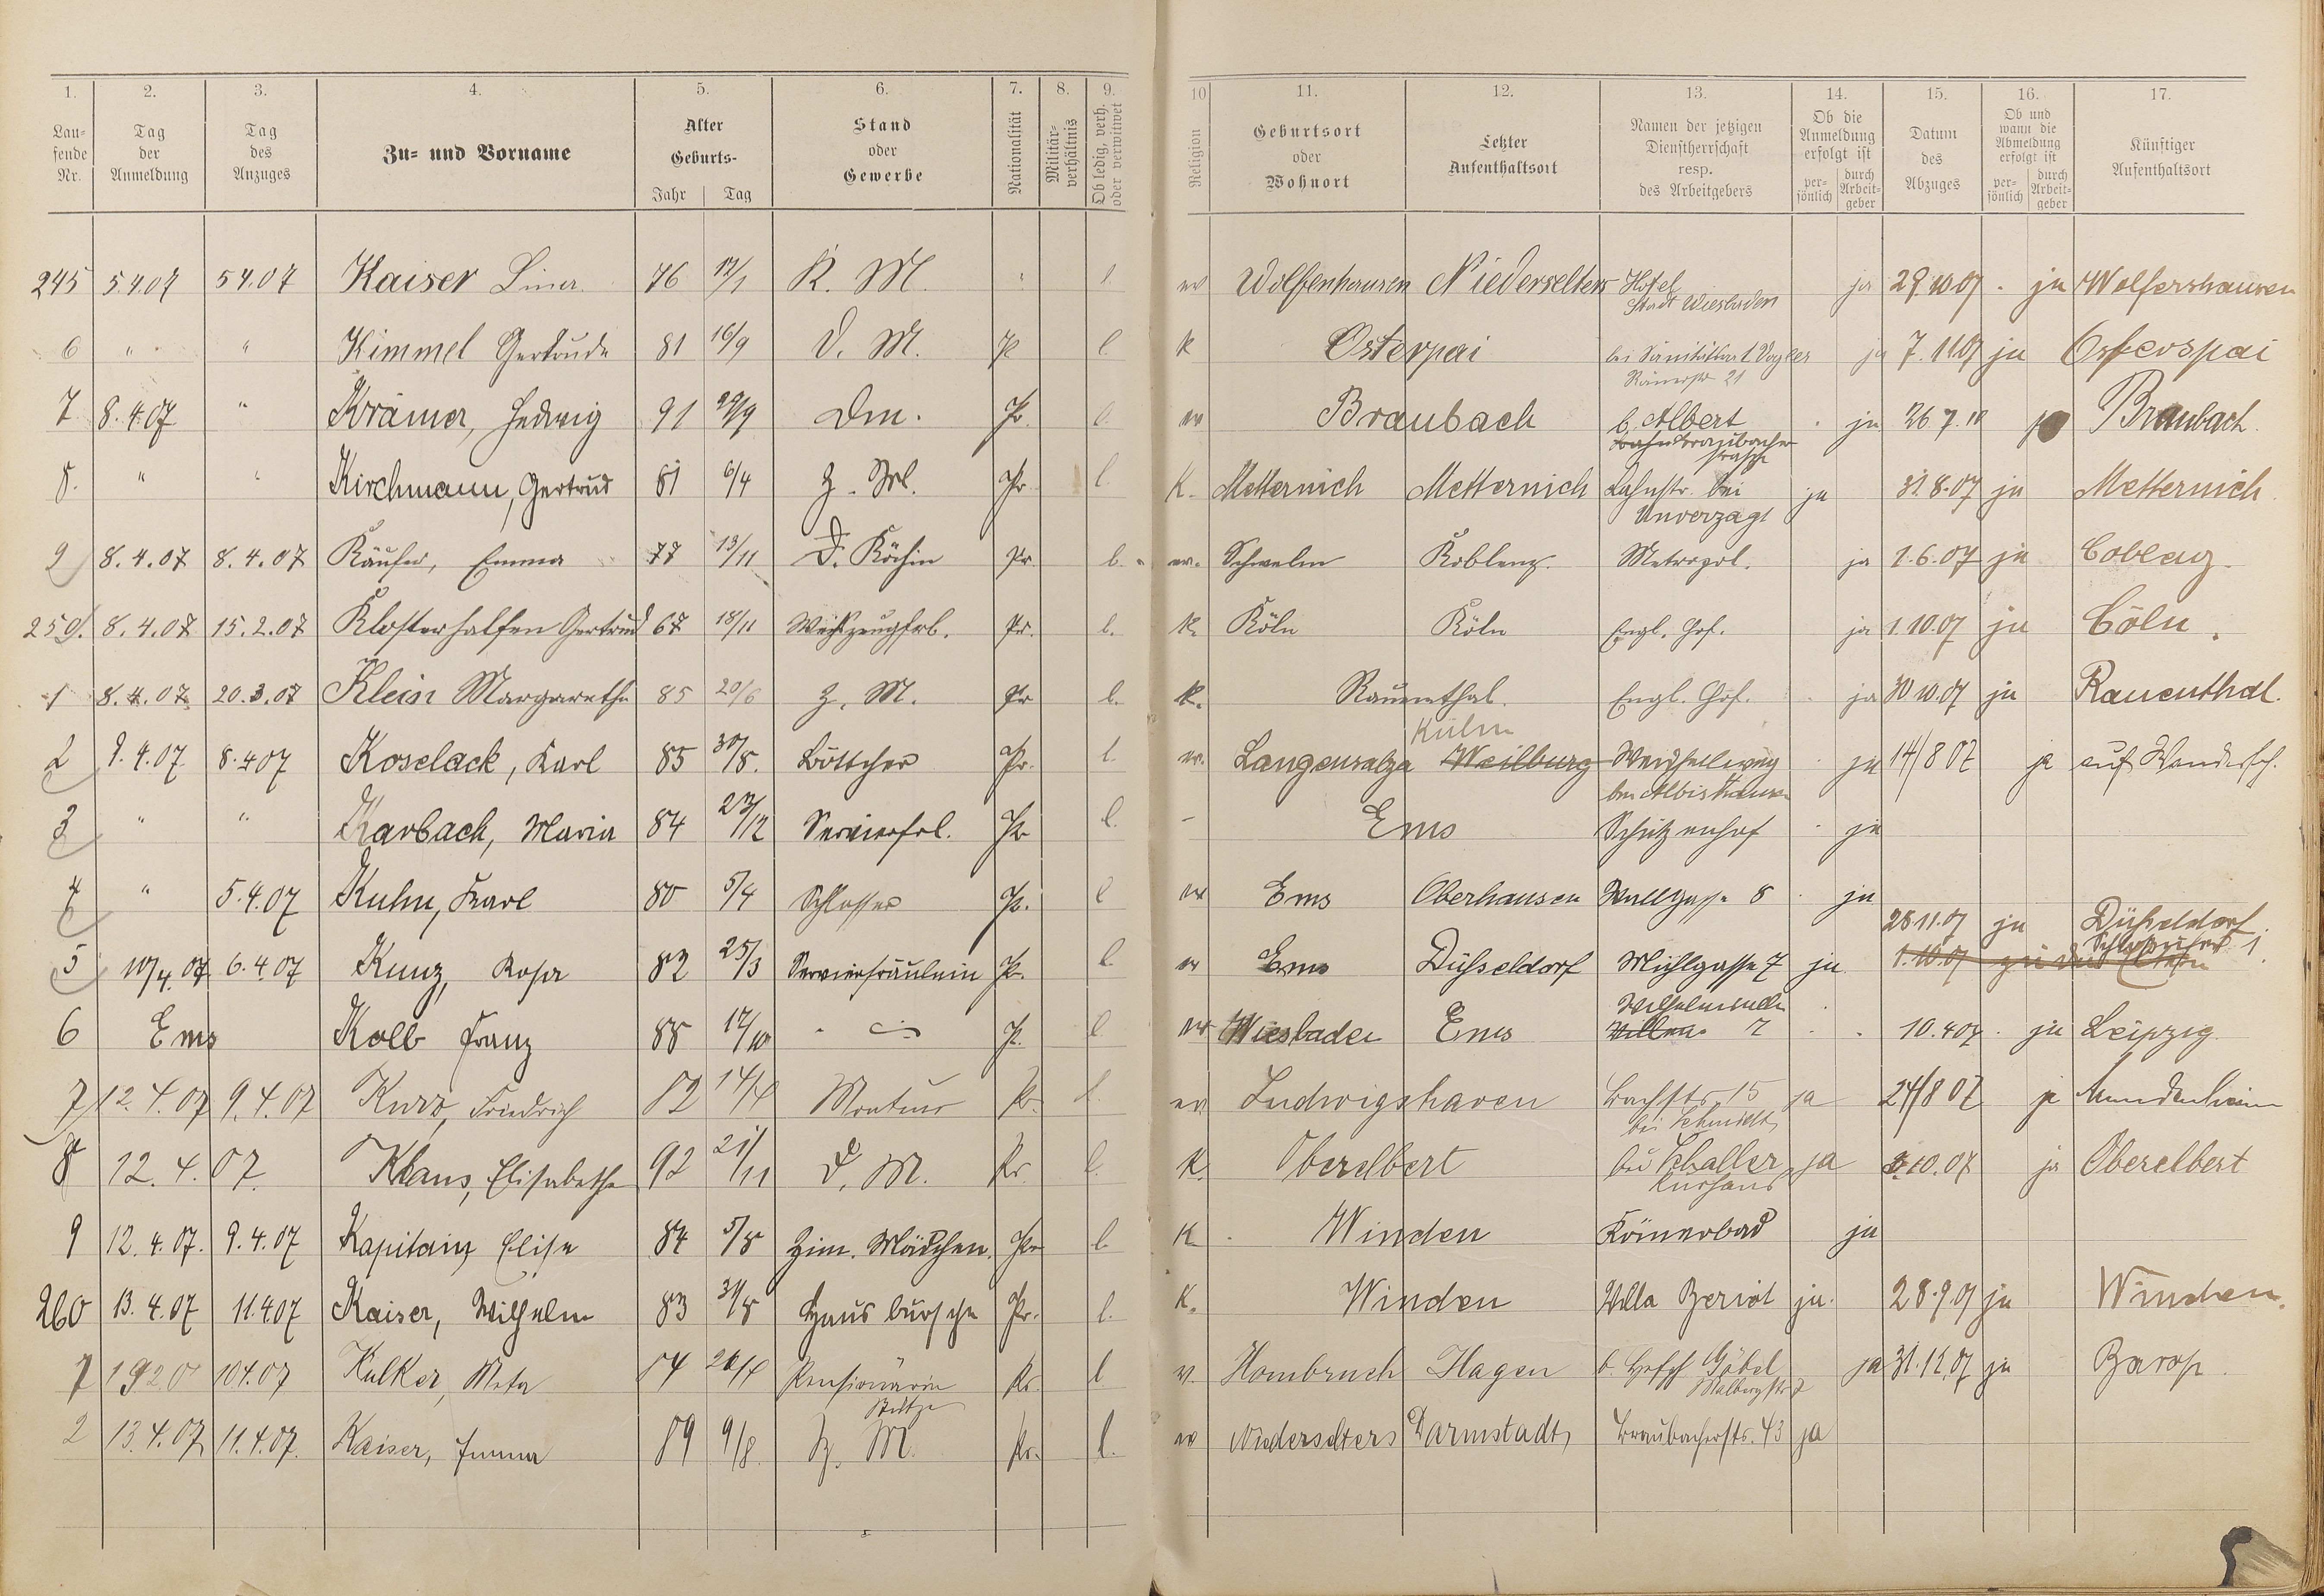 1. 2. 3. 4. 5. 6. 7. 8. 9. 10 11. 12. 13. 14. 15. 16. 17.
Lau-fende Nr.
Tag der Anmeldung
Tag des Anzuges
Zu- und Vorname
Alter Geburts- Jahr Tag
Stand oder Gewerbe
Nationalität
Militär-verhältnis
Ob ledig, verh. oder verwitwet
Religion
Geburtsort oder Wohnort
Letzter Aufenthaltsort
Namen der jetzigen Dienstherrschaft resp. des Arbeitgebers
Ob die Anmeldung erfolgt ist persönlich durch Arbeit-geber
Datum des Abzuges
Ob und wann die Abmeldung erfolgt ist persönlich durch Arbeit-geber
Künftiger Aufenthaltsort
245 5.4.07 5.4.07 Kaiser Lina 76 K. M. " l. ev Wolfenhausen Niederselters Hotel Stadt Wiesbaden ja 29.10.07 ja Wolfershausen
6 " " Kimmel Gertrude 81 16/9 D. M. Pr l. K Osterspai bei Sanitätsrat Vogler Römerstr 21 ja 7.11.07 ja Osterspai
7 8.4.07 " Krämer, Hedwig 91 29/9 Dm. Pr. l. ev Braubach b. Albert ja 26.7.10 Braubach.
8. " " Kirchmann, Gertrud 81 6/4 Z. M. Pr. l. K. Metternich Metternich Lahnstr. bei Unverzagt ja 31.8.07 ja Metternich.
9 8.4.07 8.4.07 Käufer, Emma 77 13/11 D. Köchin Pr. l. ev. Schwelm Koblenz. Metropol. ja 1.6.07 ja Coblenz.
250. 8.4.07 15.2.07 Klosterhalfen Gertrud 67 18/11 Pr. l. K. Köln Köln Engl. Hof. ja 1.10.07 ja Cöln.
1 8.4.07 20.3.07 Klein Margarethe 85 20/6 Z. M. Pr l. K. Rauenthal. Engl. Hof. ja 30.10.07 ja Rauenthal.
2 9.4.07 8.4.07 Koselack, Karl 85 30/8. Böttcher Pr. l. ev. Langensalza Weilburg Kulm ja 14/8 07 ja auf Wandersch.
3 " " Karbach, Maria 84 23/12 Servierfrl. Pr l. - Ems Schützenhof ja
4 " 5.4.07 Kuhn, Karl 80 5/4 Schlosser Pr. l ev Ems Oberhausen Wallgasse 8 ja
5 10/4.07 6.4.07 Kunz, Rosa 82 25/3 Servierfräulein Pr. l. ev Ems Düsseldorf Mühlgasse 7 ja 28.11.07 ja Düsseldorf
1.10.07
6 Ems Kolb Franz 88 17/10 Pr. l. ev Wiesbaden Ems Wilhelmsallee 7 10.4.07 ja Leipzig
7 12.4.07 9.4.07 Kurz, Friedrich 82 14/4 Monteur Pr. l. ev Ludwigshaven Bachstr. 15 bei Schmidt ja 24/8 07 ja Mundenheim
8 12.4.07. Klaus, Elisabethe 92 21/11 D. M. Pr. l. K. Oberelbert bei Schaller Kurhaus ja 10.07 ja Oberelbert
9 12.4.07. 9.4.07 Kapitain Elise 84 5/8 Zim. Mädchen. Pr l. K. Winden Römerbad ja
260 13.4.07 11.4.07 Kaiser, Wilhelm 83 31/8 Hausbursche Pr. l. K. Winden Villa Beriot ja. 28.9.07 ja Winden.
1 10.4.07 Kulker, Meta 84 26/4 Pensionärin Stütze Pr. l v. Hombruch Hagen Göbel Malbergstr. 7 ja 31.12.07 ja Barop.
2 13.4.07 11.4.07. Kaiser, Emma 89 9/8. Z. M. Pr. l. ev Niederselters Darmstadt, Braubacherstr. 43 ja